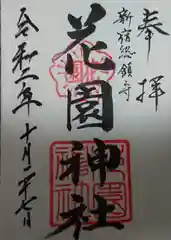 奉拝
新宿総鎮守
花園神社
令和二年十月二十七日